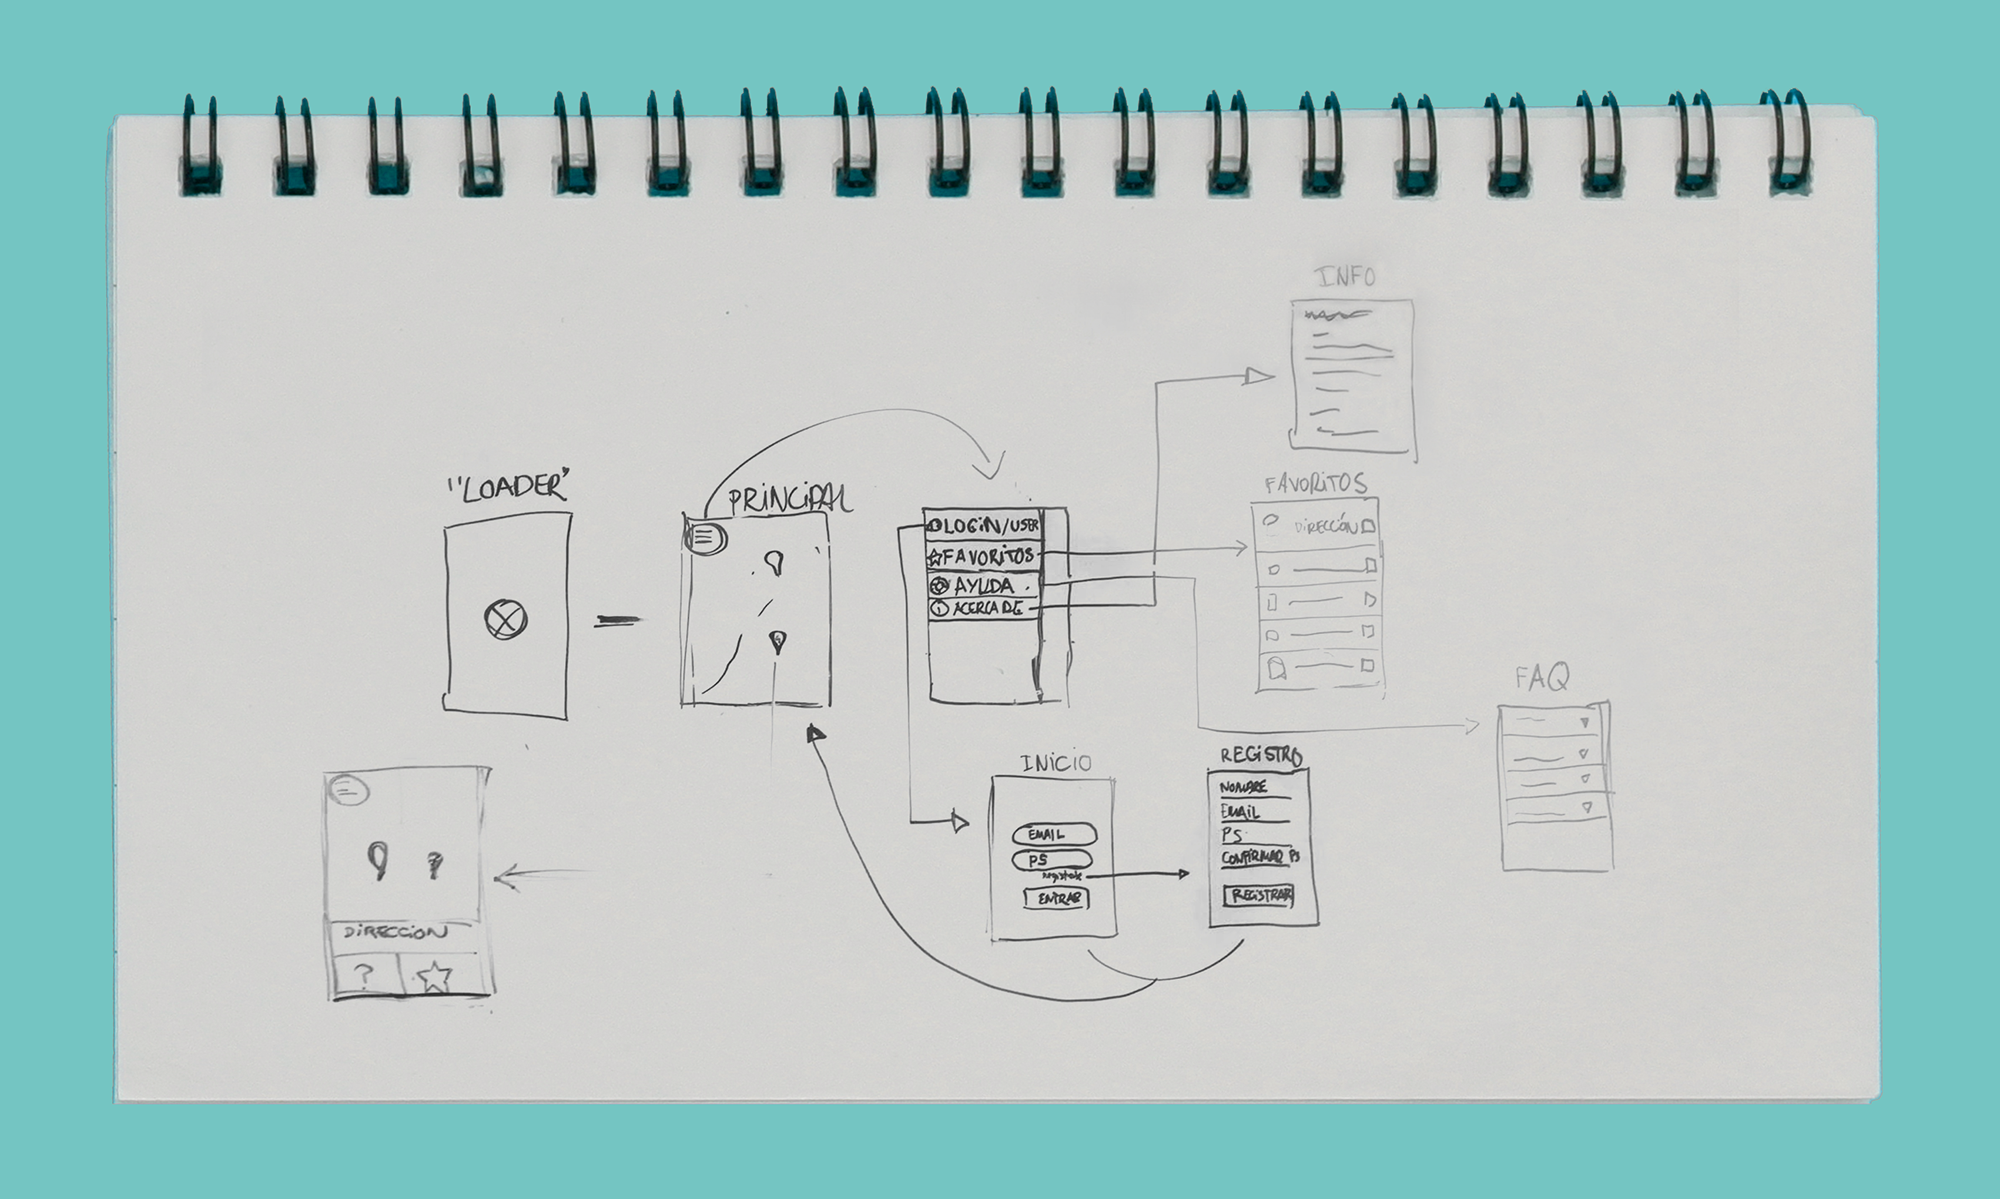 INFO
"LOADER"
PRINCIPAL
LOGIN/USER
FAVORITOS
AYUDA
ACERCA DE
FAVORITOS
DIRECCIÓN
FAQ
INICIO
EMAIL
PS
registrate
ENTRAR
REGISTRO
NOMBRE
EMAIL
PS
CONFIRMAR PS
REGISTRAR
DIRECCION
?